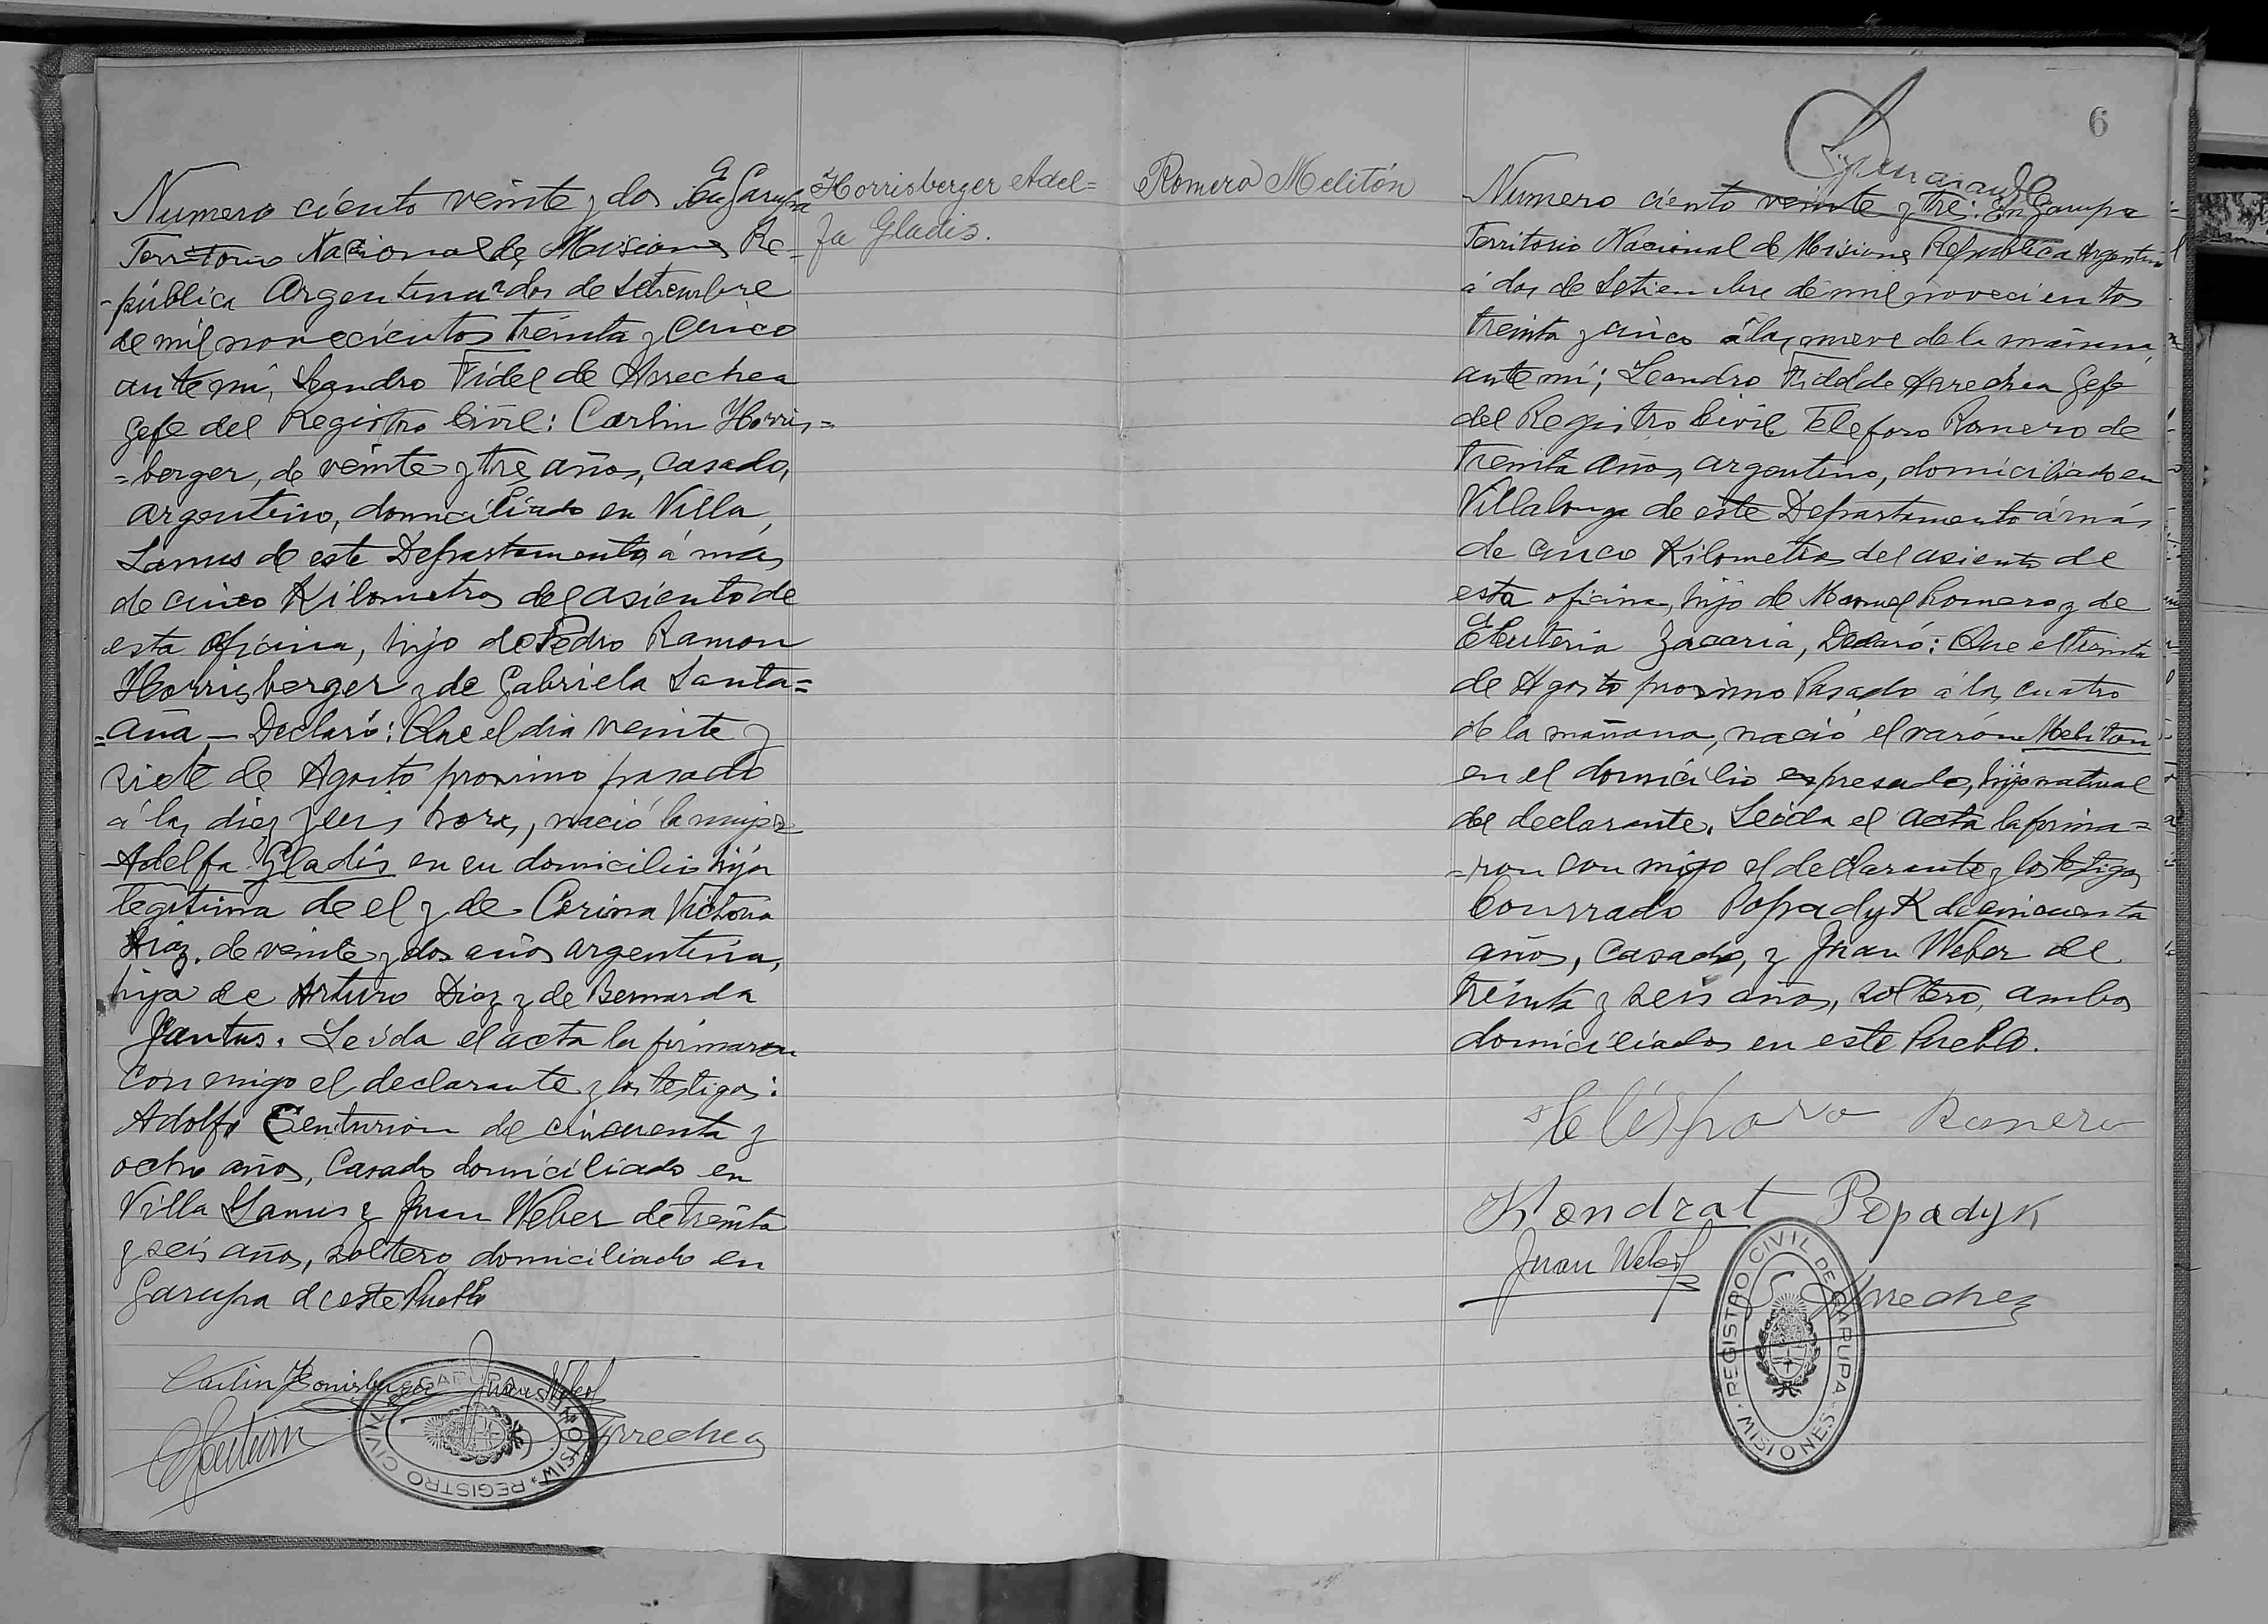 Numero ciento veinte y dos En Garupa
Territorio Nacional de Misiones Re=
=pública Argentina a dos de Setiembre
de mil novecientos treinta y cinco
ante mi, Leandro Fidel de Arrechea
Gefe del Registro Civil: Carlin Horris=
=berger, de veinte y tres años, casado,
argentino, domiciliado en Villa
Lanus de este Departamento á mas
de cinco Kilometros del asiento de
esta oficina, hijo de Pedro Ramon
Horrisberger y de Gabriela Santa=
=aña — Declaró: Que el dia veinte y
siete de Agosto proximo pasado
á las diez y seis horas, nació la mujer
Adelfa Gladis en su domicilio hija
legitima de el y de Corina Victoria
Diaz. de veinte y dos años argentina,
hija de Arturo Diaz y de Bernarda
Jantus. Leida el acta la firmaron
conmigo el declarante y los testigos:
Adolfo Centurion de cincuenta y
ocho años, Casado domiciliado en
Villa Lanus y Juan Weber de treinta
y seis años, soltero domiciliado en
Garupa de este Pueblo
Carlin Horrisberger Juan Weber
Arrechea
REGISTRO CIVIL DE GARUPA MISIONES
Horrisberger Adel=
fa Gladis.
Romero Melitón
6
Numero ciento veinte y tres: En Garupa
Territorio Nacional de Misiones Republica Argentina
á dos de Setiembre de mil novecientos
treinta y cinco á las nueve de la mañana,
ante mi; Leandro Fidel de Arrechea Gefe
del Registro Civil Teleforo Romero de
treinta años, argentino, domiciliado en
Villalonga de este Departamento á mas
de cinco Kilometros del asiento de
esta oficina, hijo de Manuel Romero y de
Eleuteria Zacaria, Declaró: Que el treinta
de Agosto proximo Pasado á las cuatro
de la mañana, nació el varón Meliton
en el domicilio expresado, hijo natural
del declarante. Leida el acta la firma=
=ron con migo el declarante y los testigos
Conrrado Popadyk de cincuenta
años, Casado, y Juan Weber de
treinta y seis años, soltero, ambos
domiciliados en este Pueblo.
Telésforo Romero
Kondrat Popadyk
Juan Weber
Arrechea
REGISTRO CIVIL DE GARUPA · MISIONES ·